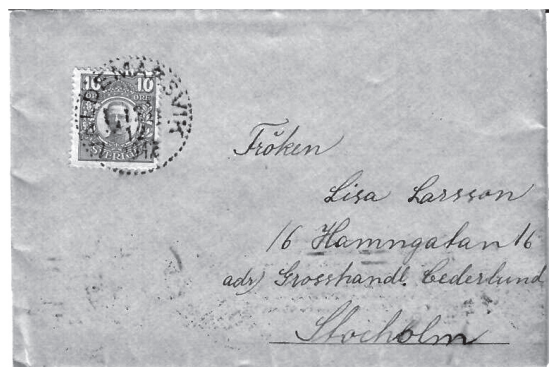 10 10
VALDEMARSVIK
SVERIGE
Fröken
Lisa Larsson
16 Hamngatan 16
adr) Grosshandl. Cederlund
Stocholm